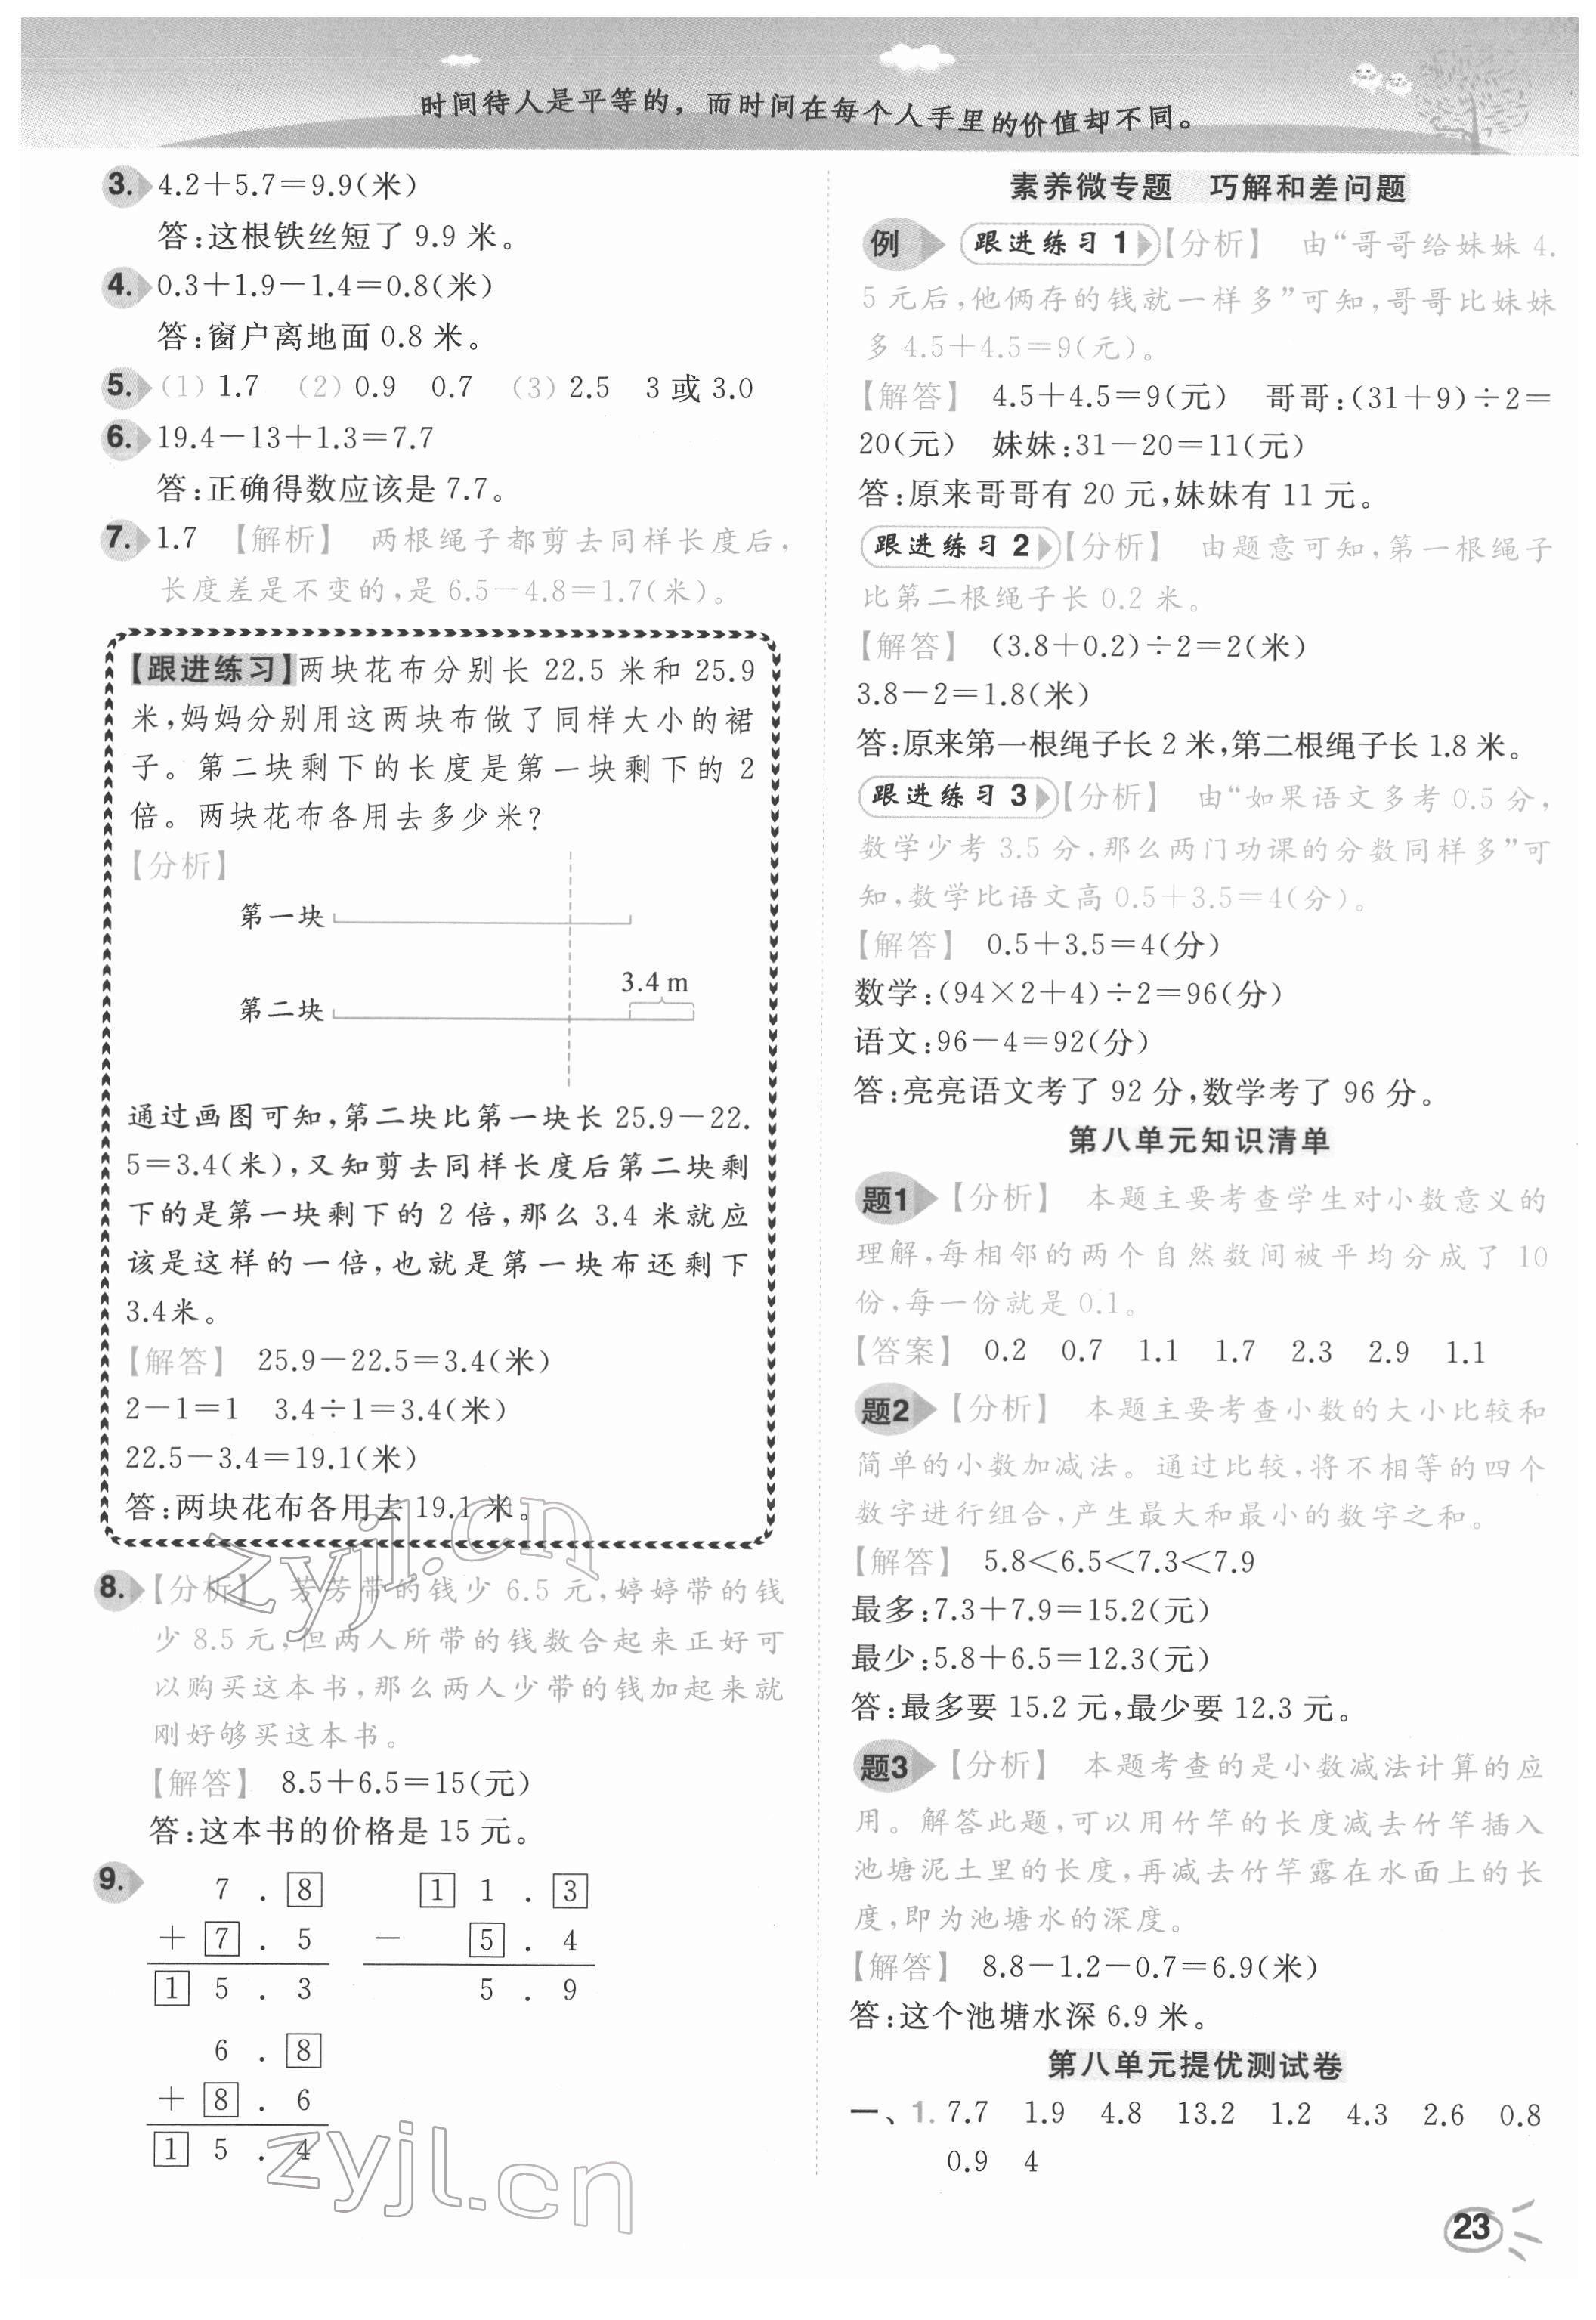 时间待人是平等的，而时间在每个人手里的价值却不同。
3. 4.2＋5.7＝9.9(米)
答：这根铁丝短了 9.9 米。
4. 0.3＋1.9－1.4＝0.8(米)
答：窗户离地面 0.8 米。
5. (1) 1.7 (2) 0.9 0.7 (3) 2.5 3 或 3.0
6. 19.4－13＋1.3＝7.7
答：正确得数应该是 7.7。
7. 1.7 【解析】 两根绳子都剪去同样长度后，
长度差是不变的，是 6.5－4.8＝1.7(米)。
【跟进练习】两块花布分别长 22.5 米和 25.9
米，妈妈分别用这两块布做了同样大小的裙
子。第二块剩下的长度是第一块剩下的 2
倍。两块花布各用去多少米？
【分析】
第一块
3.4 m
第二块
通过画图可知，第二块比第一块长 25.9－22.
5＝3.4(米)，又知剪去同样长度后第二块剩
下的是第一块剩下的 2 倍，那么 3.4 米就应
该是这样的一倍，也就是第一块布还剩下
3.4米。
【解答】 25.9－22.5＝3.4(米)
2－1＝1 3.4÷1＝3.4(米)
22.5－3.4＝19.1(米)
答：两块花布各用去 19.1 米。
8. 【分析】 芳芳带的钱少 6.5 元，婷婷带的钱
少 8.5 元，但两人所带的钱数合起来正好可
以购买这本书，那么两人少带的钱加起来就
刚好够买这本书。
【解答】 8.5＋6.5＝15(元)
答：这本书的价格是 15 元。
9. 7 . 8 1 1 . 3
＋ 7 . 5 － 5 . 4
1 5 . 3 5 . 9
6 . 8
＋ 8 . 6
1 5 . 4
素养微专题 巧解和差问题
例 跟进练习 1 【分析】 由“哥哥给妹妹 4.
5 元后，他俩存的钱就一样多”可知，哥哥比妹妹
多 4.5＋4.5＝9(元)。
【解答】 4.5＋4.5＝9(元) 哥哥：(31＋9)÷2＝
20(元) 妹妹：31－20＝11(元)
答：原来哥哥有 20 元，妹妹有 11 元。
跟进练习 2 【分析】 由题意可知，第一根绳子
比第二根绳子长 0.2 米。
【解答】 (3.8＋0.2)÷2＝2(米)
3.8－2＝1.8(米)
答：原来第一根绳子长 2 米，第二根绳子长 1.8 米。
跟进练习 3 【分析】 由“如果语文多考 0.5 分，
数学少考 3.5 分，那么两门功课的分数同样多”可
知，数学比语文高 0.5＋3.5＝4(分)。
【解答】 0.5＋3.5＝4(分)
数学：(94×2＋4)÷2＝96(分)
语文：96－4＝92(分)
答：亮亮语文考了 92 分，数学考了 96 分。
第八单元知识清单
题1 【分析】 本题主要考查学生对小数意义的
理解，每相邻的两个自然数间被平均分成了 10
份，每一份就是 0.1。
【答案】 0.2 0.7 1.1 1.7 2.3 2.9 1.1
题2 【分析】 本题主要考查小数的大小比较和
简单的小数加减法。通过比较，将不相等的四个
数字进行组合，产生最大和最小的数字之和。
【解答】 5.8＜6.5＜7.3＜7.9
最多：7.3＋7.9＝15.2(元)
最少：5.8＋6.5＝12.3(元)
答：最多要 15.2 元，最少要 12.3 元。
题3 【分析】 本题考查的是小数减法计算的应
用。解答此题，可以用竹竿的长度减去竹竿插入
池塘泥土里的长度，再减去竹竿露在水面上的长
度，即为池塘水的深度。
【解答】 8.8－1.2－0.7＝6.9(米)
答：这个池塘水深 6.9 米。
第八单元提优测试卷
一、1. 7.7 1.9 4.8 13.2 1.2 4.3 2.6 0.8
0.9 4
23
zyjl.cn
zyjl.cn